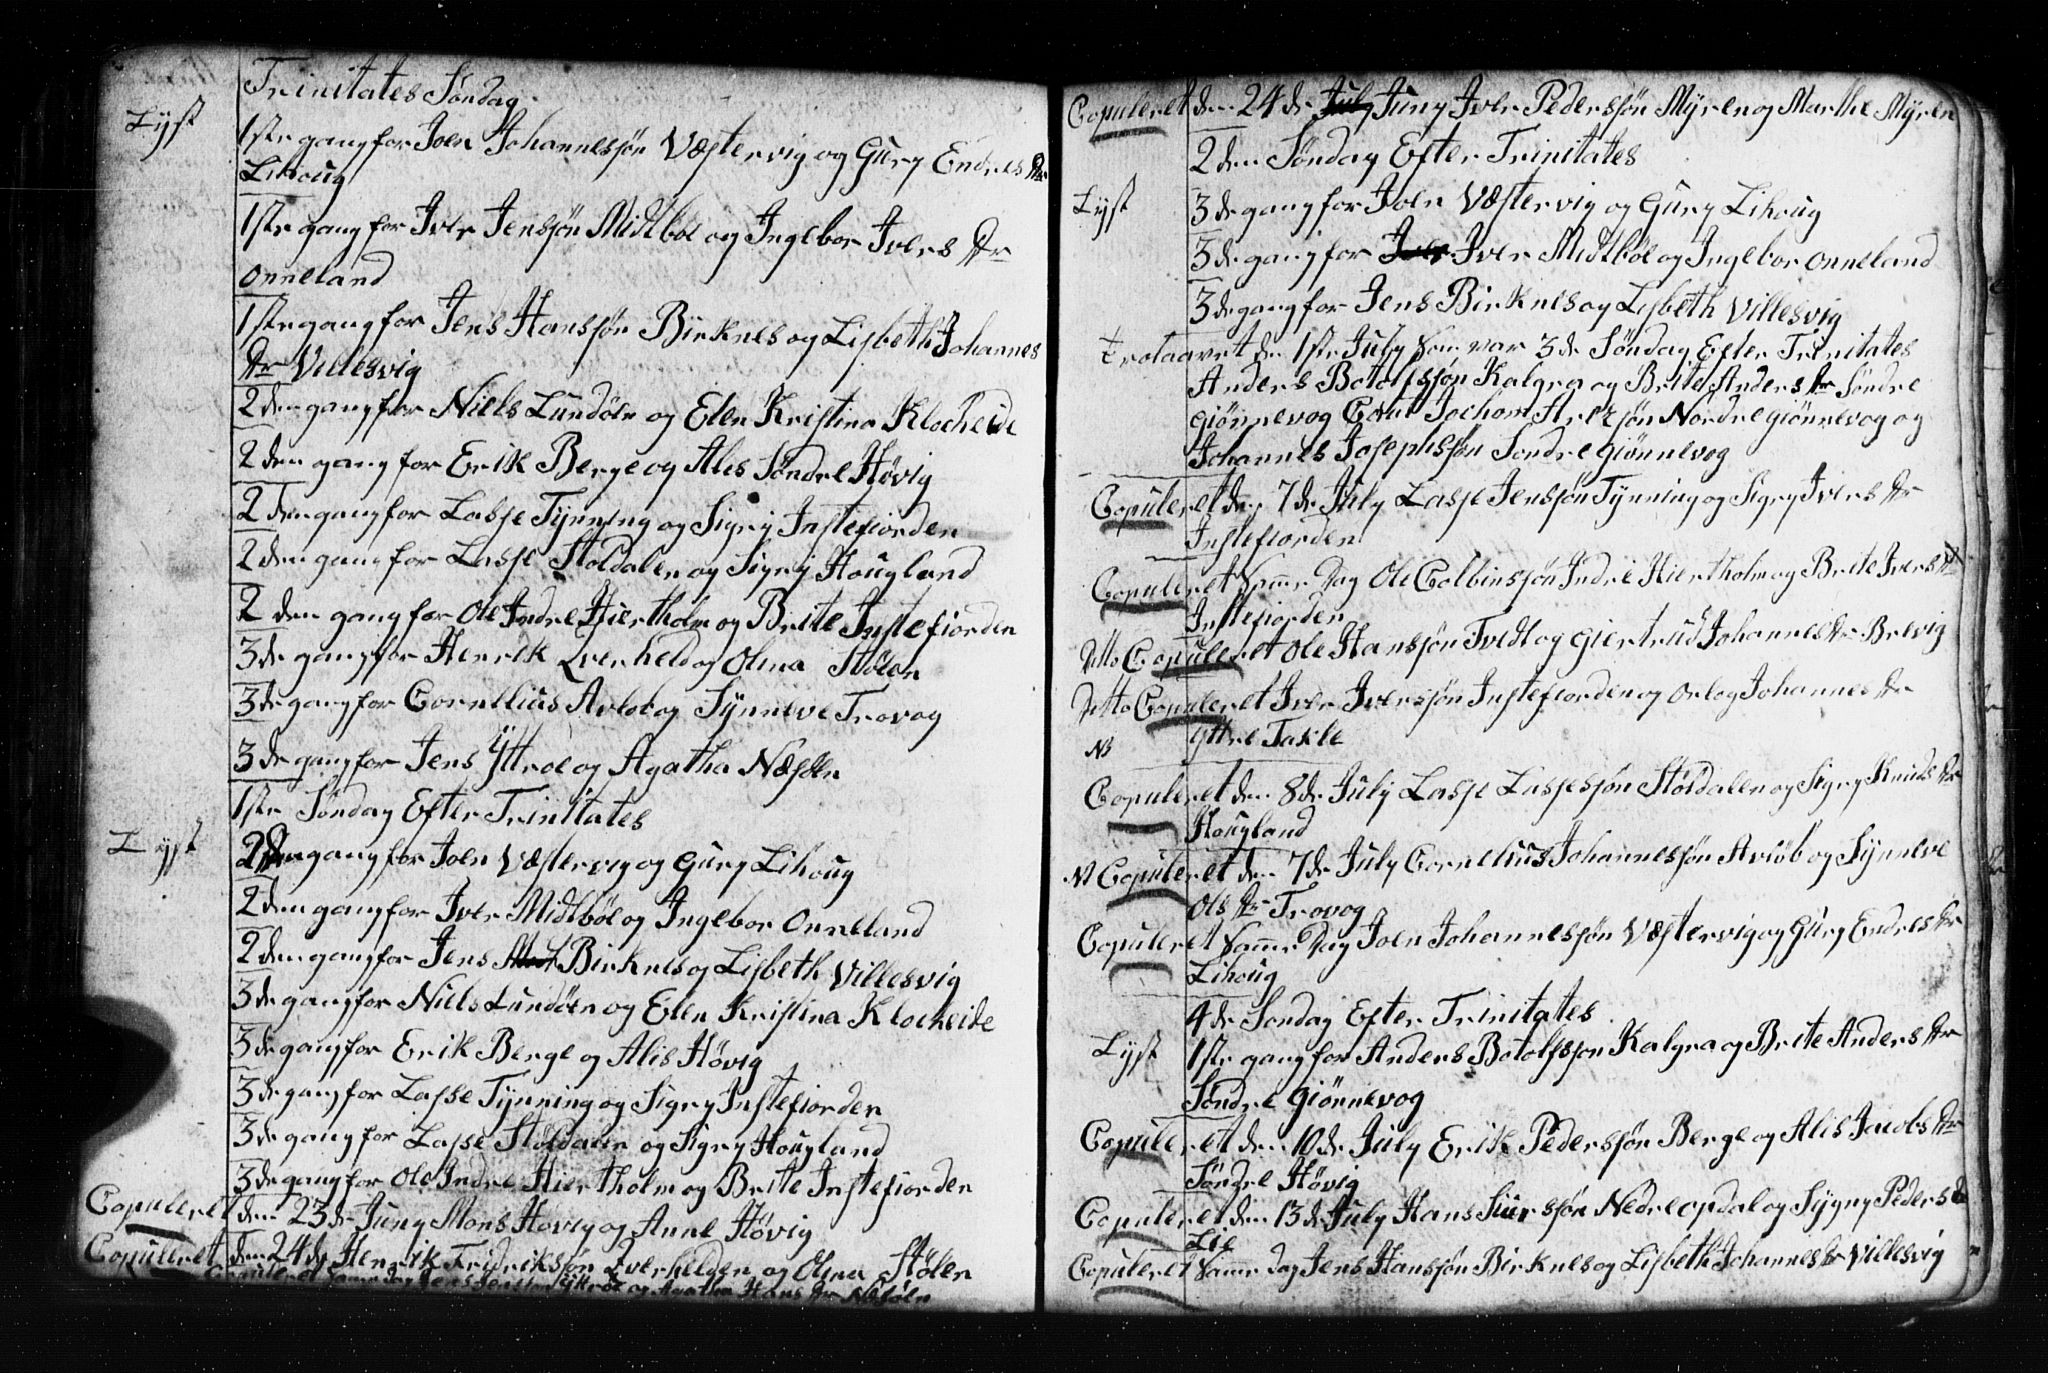 Trinitates Søndag
Lyst 1ste gang for Joen Johannessøn Væstervig og Gury Endres Dr
Lihoug
1ste gang for Iver Jenssøn Midtböe og Ingebor Ivers Dr
Onneland
1ste gang for Jens Hanssøn Birknes og Lisbeth Johannes
Dr Villesvig
2den gang for Niels Lundöen og Elen Kristina Klocheide
2den gang for Erik Berge og Alis Søndre Høvig
2den gang for Lasse Tynning og Sigry Instefiorden
2den gang for Lasse Stöldalen og Sigry Hougland
2den gang for Ole Indre Hiertholm og Brite Instefiorden
3de gang for Henrik Qverheld og Olina Stölen
3de gang for Cornelius Avlöb og Synneve Trovog
3de gang for Jens Yttröe og Agatha Næsöen
1ste Søndag Efter Trinitates
Lyst 2den gang for Joen Væstervig og Gury Lihoug
2den gang for Iver Midtböe og Ingebor Onneland
2den gang for Jens Birknes og Lisbeth Villesvig
3de gang for Niels Lundöen og Elen Kristina Klocheide
3de gang for Erik Berge og Alis Høvig
3de gang for Lasse Tynning og Sigry Instefiorden
3de gang for Lasse Stöldalen og Sigry Hougland
3de gang for Ole Indre Hiertholm og Brite Instefiorden
Copuleret den 23de Juny Mons Høvig og Anne Høvig
Copulleret den 24de Henrik Fridrikssøn Qverhelden og Olina Stölen
Copuleret Samme Dag Jens Jenssøn Yttröe og Agatha Hans Dr Næsöen
Copuleret den 24de July Juny Iver Pederssøn Myren og Marthe Myren
2den Søndag Efter Trinitates
Lyst 3de gang for Joen Væstervig og Gury Lihoug
3de gang for Iver Iver Midtböe og Ingebor Onneland
3de gang for Jens Birknes og Lisbeth Villesvig
trolaavet den 1ste July Som var 3de Søndag Efter Trinitates
Anders Botolfssøn Kalgra og Brite Anders Dr Søndre
Giönnevog Caut Jochom Nordre Giönnevog og
Johannes Josephssøn Søndre Giönnevog
Copuleret den 7de July Lasse Jenssøn Tynning og Sigry Ivers Dr
Instefiorden
Copuleret Samme Dag Ole Colbinssøn Indre Hiertholm og Brite Ivers Dr
Instefiorden
Ditto Copuleret Ole Hanssøn Tvedt og Giertrud Johannes Dr Brevig
Ditto Copuleret Iver Iverssøn Instefiorden og Orlog Johannes Dr
NB Yttre Takle
Copuleret den 8de July Lasse Lassessøn Stöldalen og Sigry Knuds Dr
Hougland
NB Copuleret den 7de July Cornelius Johannessøn Avlöb og Synneve
Ols Dr Trovog
Copuleret Samme Dag Joen Johannessøn Væstervig og Gury Endres Dr
Lihoug
4de Søndag Efter Trinitates
Lyst 1ste gang for Anders Botolfssøn Kalgra og Brite Anders Dr
Søndre Giönnevog
Copuleret den 10de July Erik Pederssøn Berge og Alis Jacobs Dr
Søndre Høvig
Copuleret den 13de July Hans Siurssøn Nedre Opdal og Sygny Peders Dr
Lie
Copuleret Samme Dag Jens Hanssøn Birknes og Lisbeth Johannes Dr Villesvig